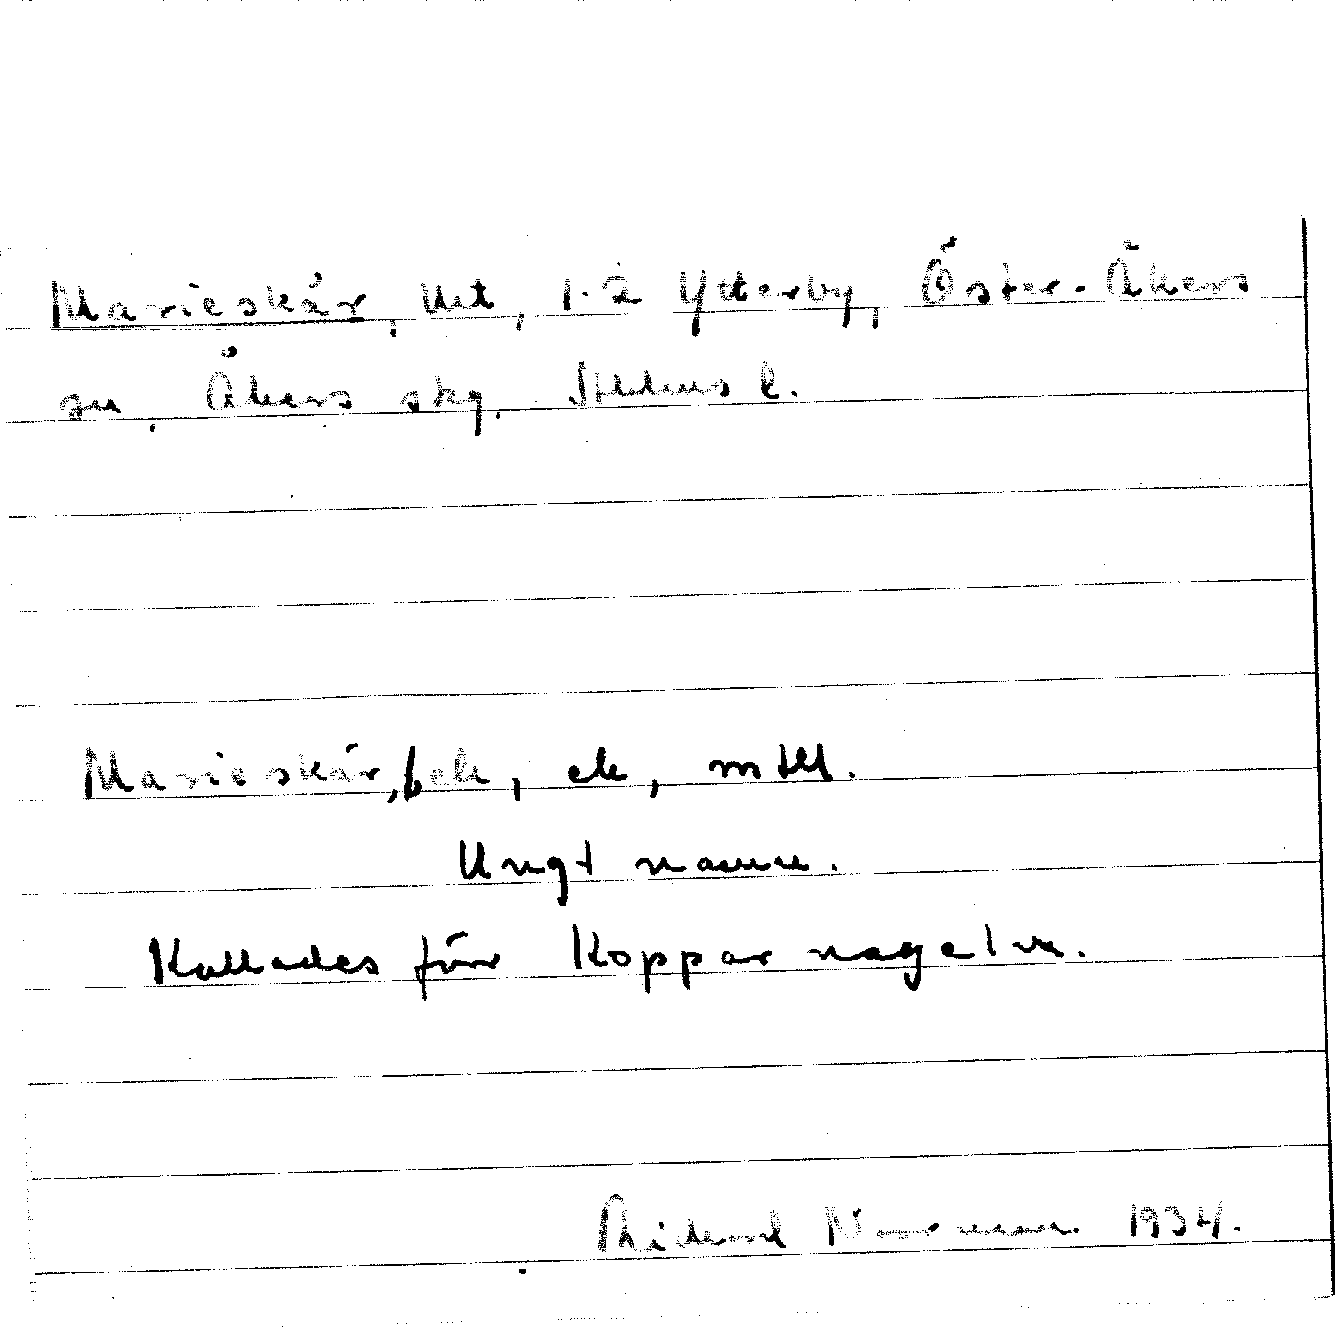 Marieskär, litt, 1:2 Ytterby, Öster-Åkers
sn, Åkers skg. Sthlms l.
Marieskär, ek, mtll.
Ungt namn.
Kallades förr Kopparnageln.
Rickard 1934.